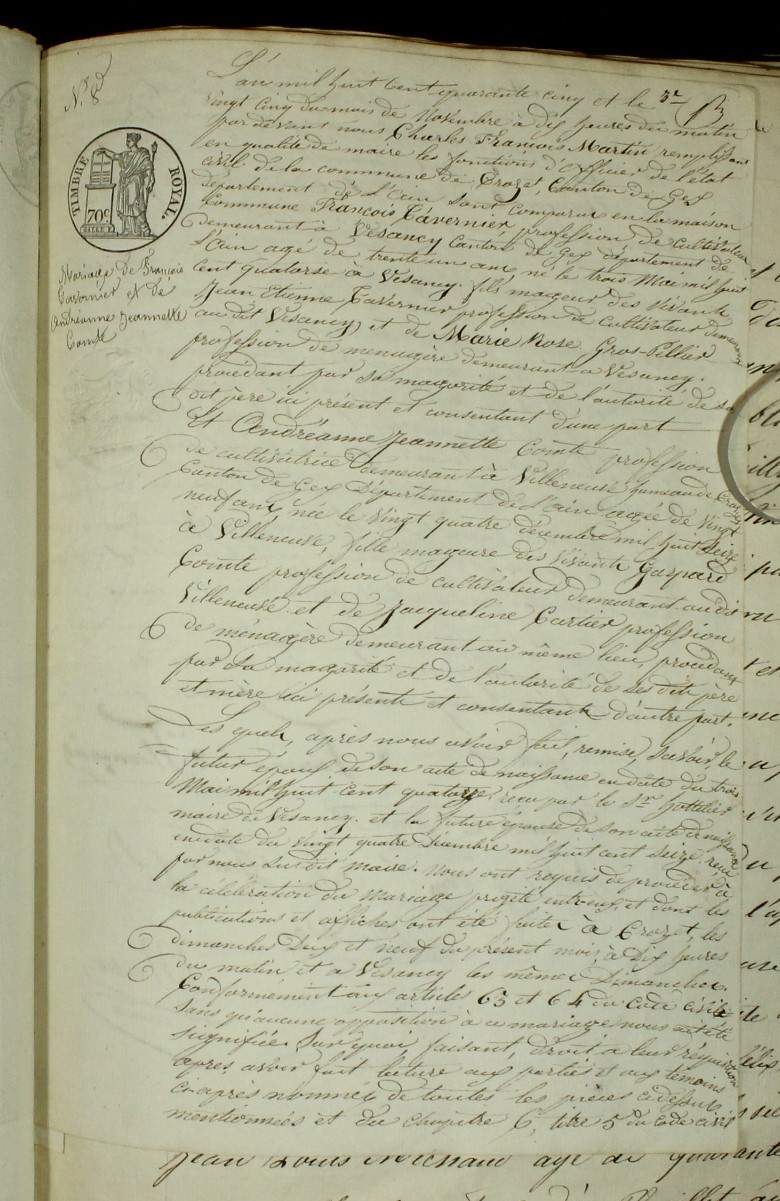 N.º 8
3.e
TIMBRE ROYAL
70c
Mariage de François
Tavernier et de
Andréanne Jeannette
Comte
L'an mil huit cent quarante cinq et le
vingt cinq du mois de Novembre à dix heures du matin
par devant nous Charles François Martin remplissant
en qualité de maire les fonctions d'officier de l'état
civil de la commune de Crozet, Canton de Gex
département de l'Ain sont comparu en la maison
commune François Tavernier profession de cultivateur
demeurant à Vesancy Canton de Gex département de
l'Ain agé de trente un ans, né le trois Mai mil huit
cent quatorse à Vesancy. fils majeur des vivants
Jean Etienne Tavernier profession de cultivateur demeurant
au dit Vesancy, et de Marie Rose Gros-Pellier
profession de menagère demeurant à Vesancy.
procédant par sa magorité et de l'autorité de son
dit père ici présent et consentant d'une part
Et Andréanne Jeannette Comte profession
de cultivatrice demeurant à Villeneuve hameau de Crozet
Canton de Gex Département de l'ain agée de vingt
neuf ans, née le vingt quatre décembre mil huit seize
à Villeneuve, fille mageure des vivants Gaspard
Comte profession de cultivateur demeurant audit
Villeneuve et de Jacqueline Cartier profession
de ménagère demeurant au même lieu, procédant
par sa magorité et de l'autorité de ses dits père
et mère ici présents et consentants d'autre part.
Les quels, après nous avoir fait, remise, savoir, le
futur épous de son acte de naissance en date du trois
Mai mil huit cent quatorze reçu par le Sr
maire de Vesancy. et la future épouse de son acte de naissance
en date du vingt quatre Décembre mil huit cent seize, reçu
par nous sus dit maire. Nous ont requis de procéder à
la célébration du Mariage projeté entr'eux, et dont les
publications et affiches ont été faites à Crozet, les
dimanches deux et neuf du présent mois, à dix heures
du matin et à Vesancy les mêmes Dimanches.
Conformément aux articles 63 et 64 du code civile
sans qu'aucune opposition à ce mariage nous ait été
signifiée. Sur quoi faisant, droit à leur réquisition
après avoir fait lecture aux parties et aux témoins
ci après nommés de toutes les pièces ci dessus
mentionnées et du chapitre 6, titre 5 du code civil
Jean Louis Michaud agé de quarante